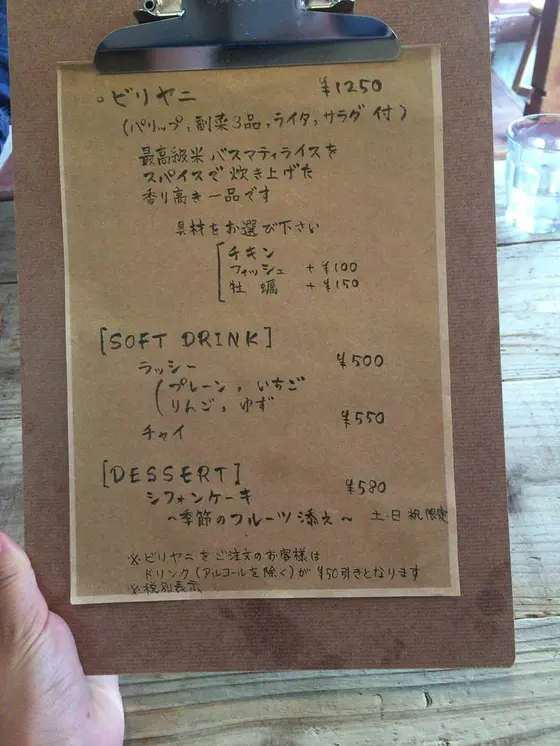 ・ビリヤニ ¥1250
(パリップ, 副菜3品, ライタ, サラダ付)
最高級米バスマティライスを
スパイスで炊き上げた
香り高き一品です
具材をお選び下さい
チキン
フィッシュ +¥100
牡蠣 +¥150
[SOFT DRINK]
ラッシー ¥500
(プレーン, いちご
りんご, ゆず
チャイ ¥550
[DESSERT]
シフォンケーキ ¥580
~季節のフルーツ添え~ 土・日祝限定
※ビリヤニをご注文のお客様は
ドリンク(アルコールを除く)が¥50引きとなります
※税別表示